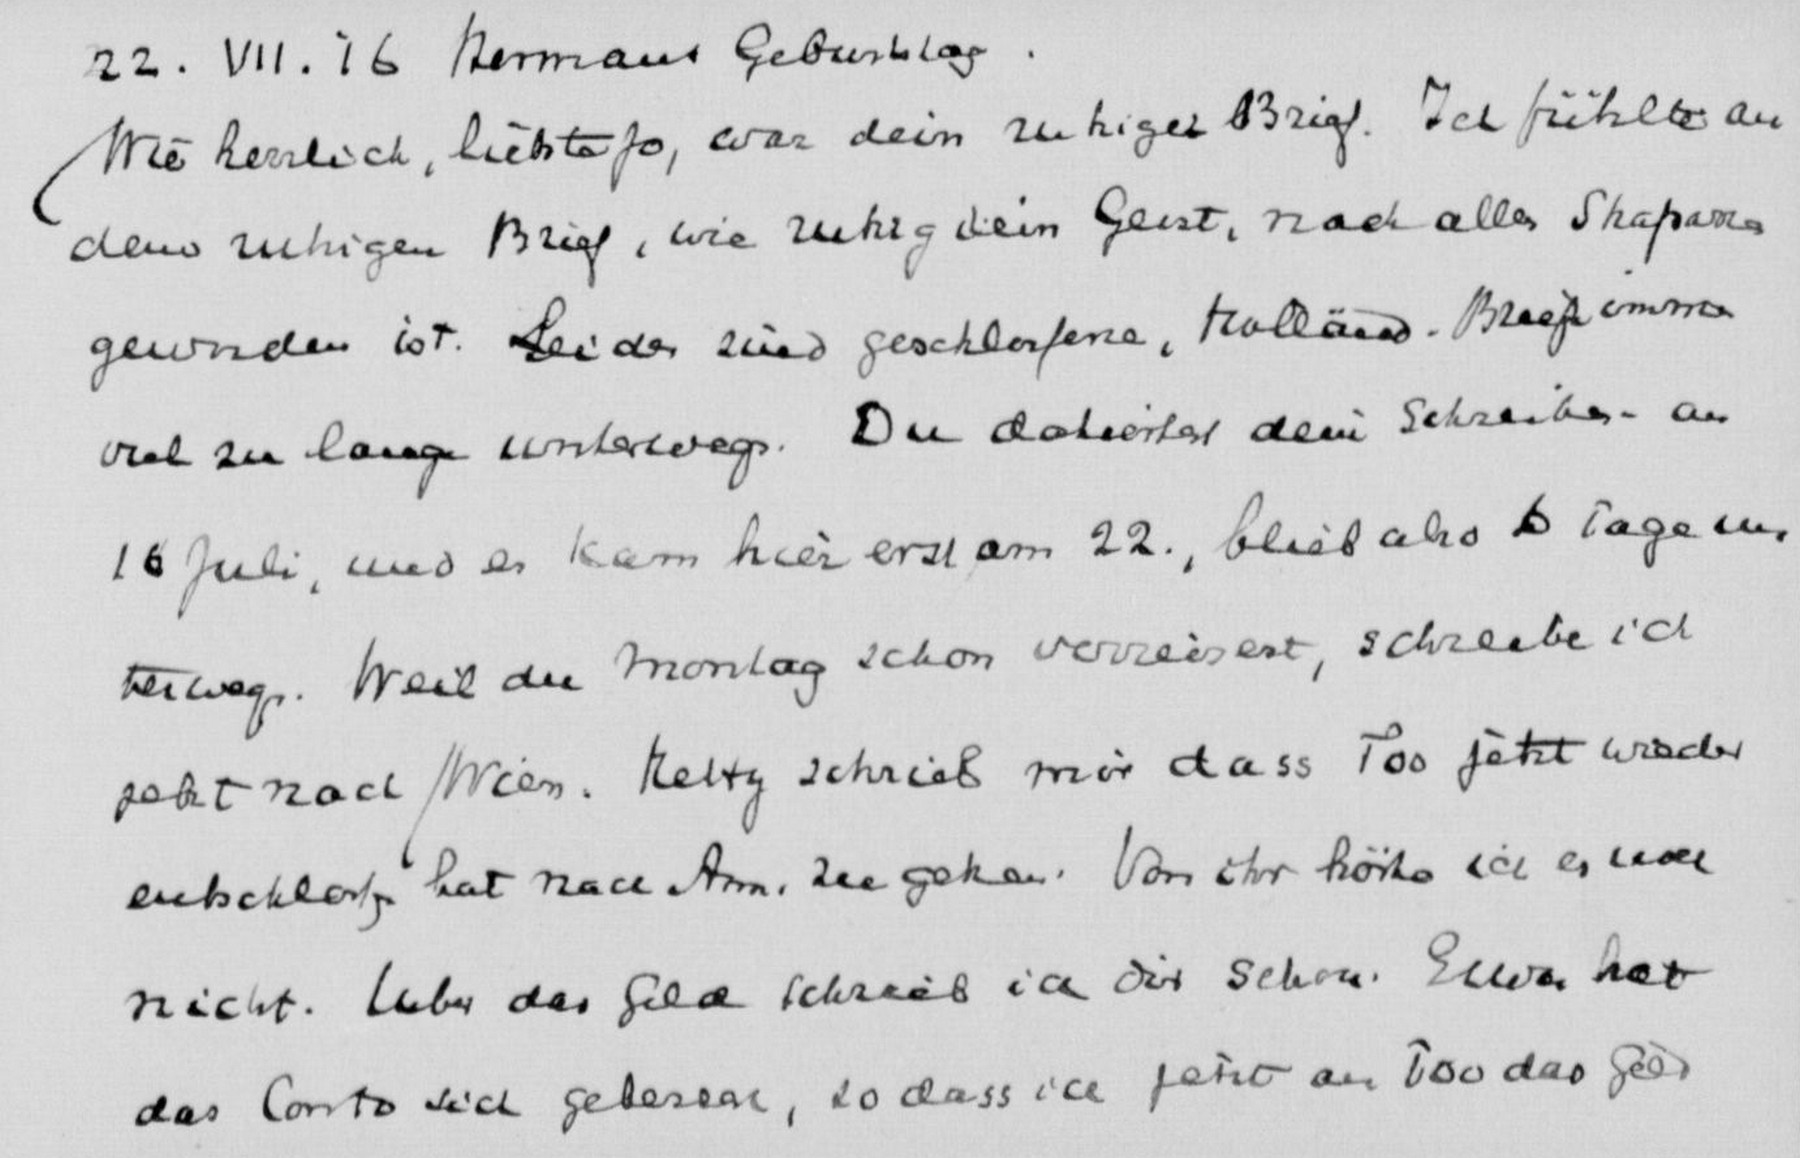 22. VII. 16 Hermans Geburtstag.
Wie herrlich, liebste Jo, war dein ruhiger Brief. Ich fühlte an
dem ruhigen Brief, wie ruhig dein Geist, nach alles
geworden ist. Leider sind geschlossene, holländ. Briefe immer
viel zu lange unterwegs. Du datiertest dein Schreiben am
16 Juli, und es kam hier erst am 22., blieb also 6 Tage un
terwegs. Weil du Montag schon verreisest, schreibe ich
jetzt nach Wien. Hetty schrieb mir dass Too jetzt wieder
entschlossen hat nach Am. zu gehen. Von ihr hörte ich es noch
nicht. Ueber das Geld schrieb ich dir schon. hat
das Conto sich gebessert, so dass ich jetzt an Too das Geld